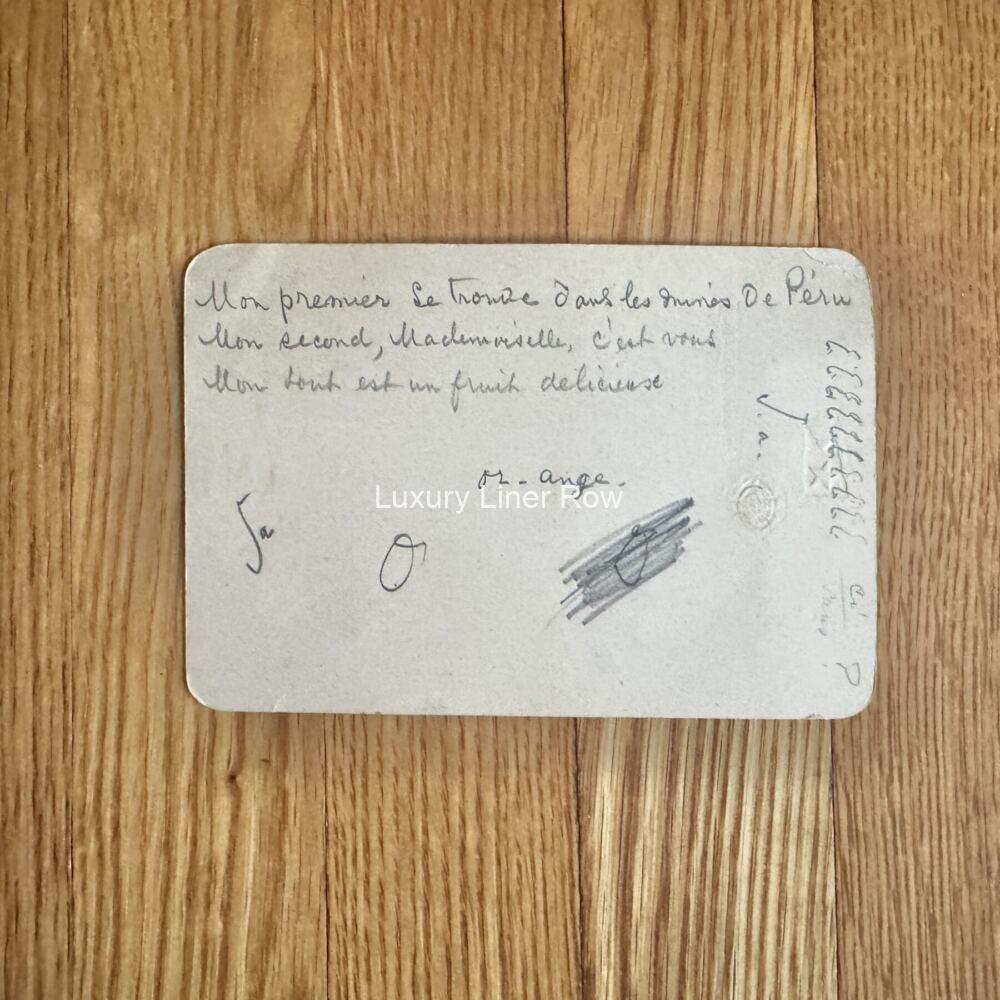 Mon premier se trouve dans les mines De Péru
Mon second, Mademoiselle, c'est vous
Mon tout est un fruit delicieuse
or - ange.
Luxury Liner Row
Ja
O
J. a.